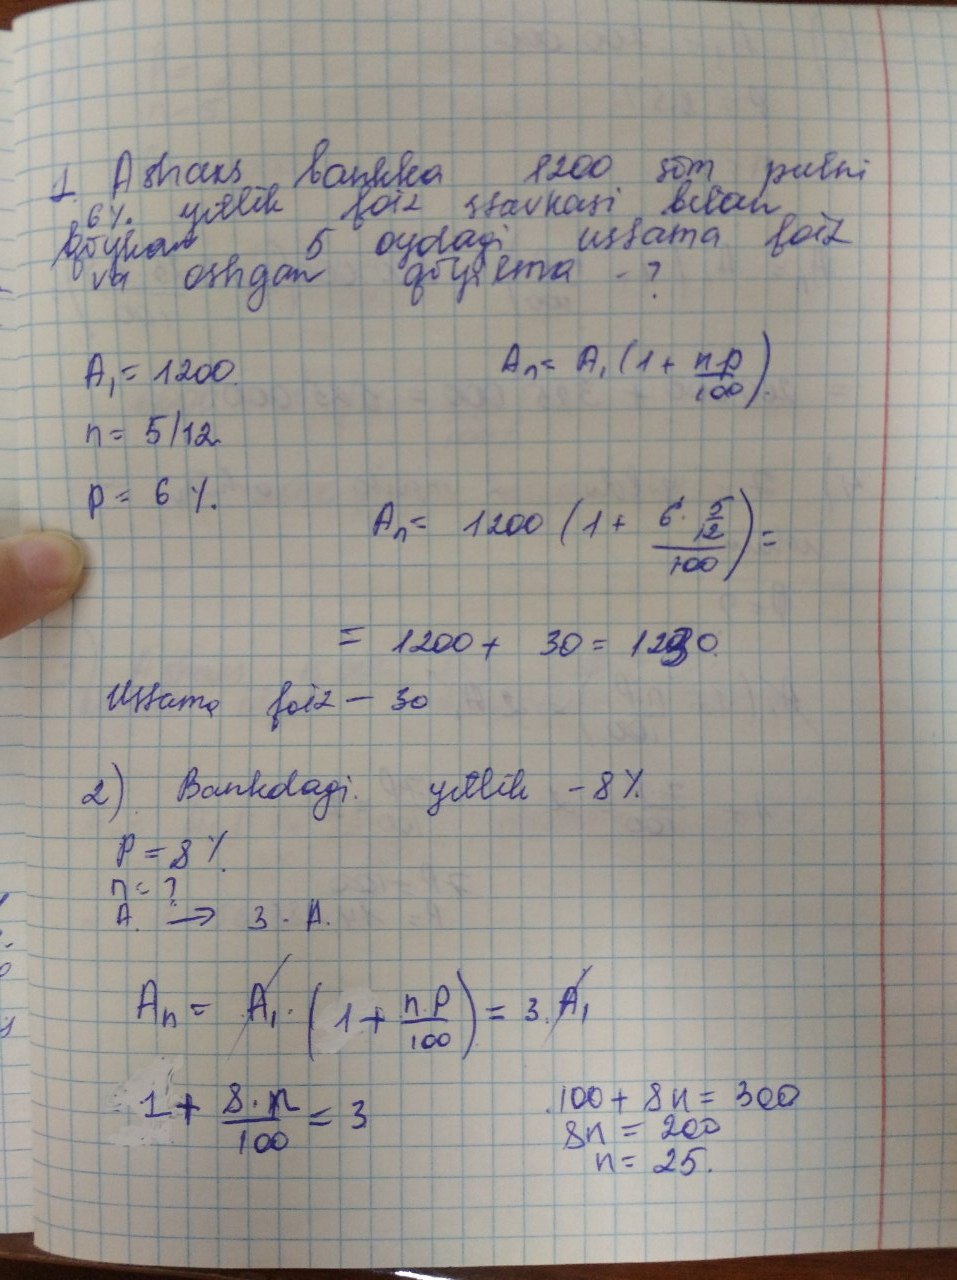 1. A shaxs bankka 1200 so'm pulni
6% yillik foiz stavkasi bilan
qo'ygan 5 oydagi ustama foiz
va oshgan qo'yilma - ?
A₁ = 1200.
Aₙ = A₁ (1 + n·p/100).
n = 5/12.
p = 6 %.
Aₙ = 1200 (1 + 6 · 5/12 / 100) =
= 1200 + 30 = 1230.
Ustama foiz – 30
2) Bankdagi yillik – 8%.
P = 8 %.
n = ?
A. → 3 · A.
Aₙ = A₁ · (1 + n·P/100) = 3 · A₁
1 + 8·n/100 = 3
100 + 8n = 300
8n = 200
n = 25.